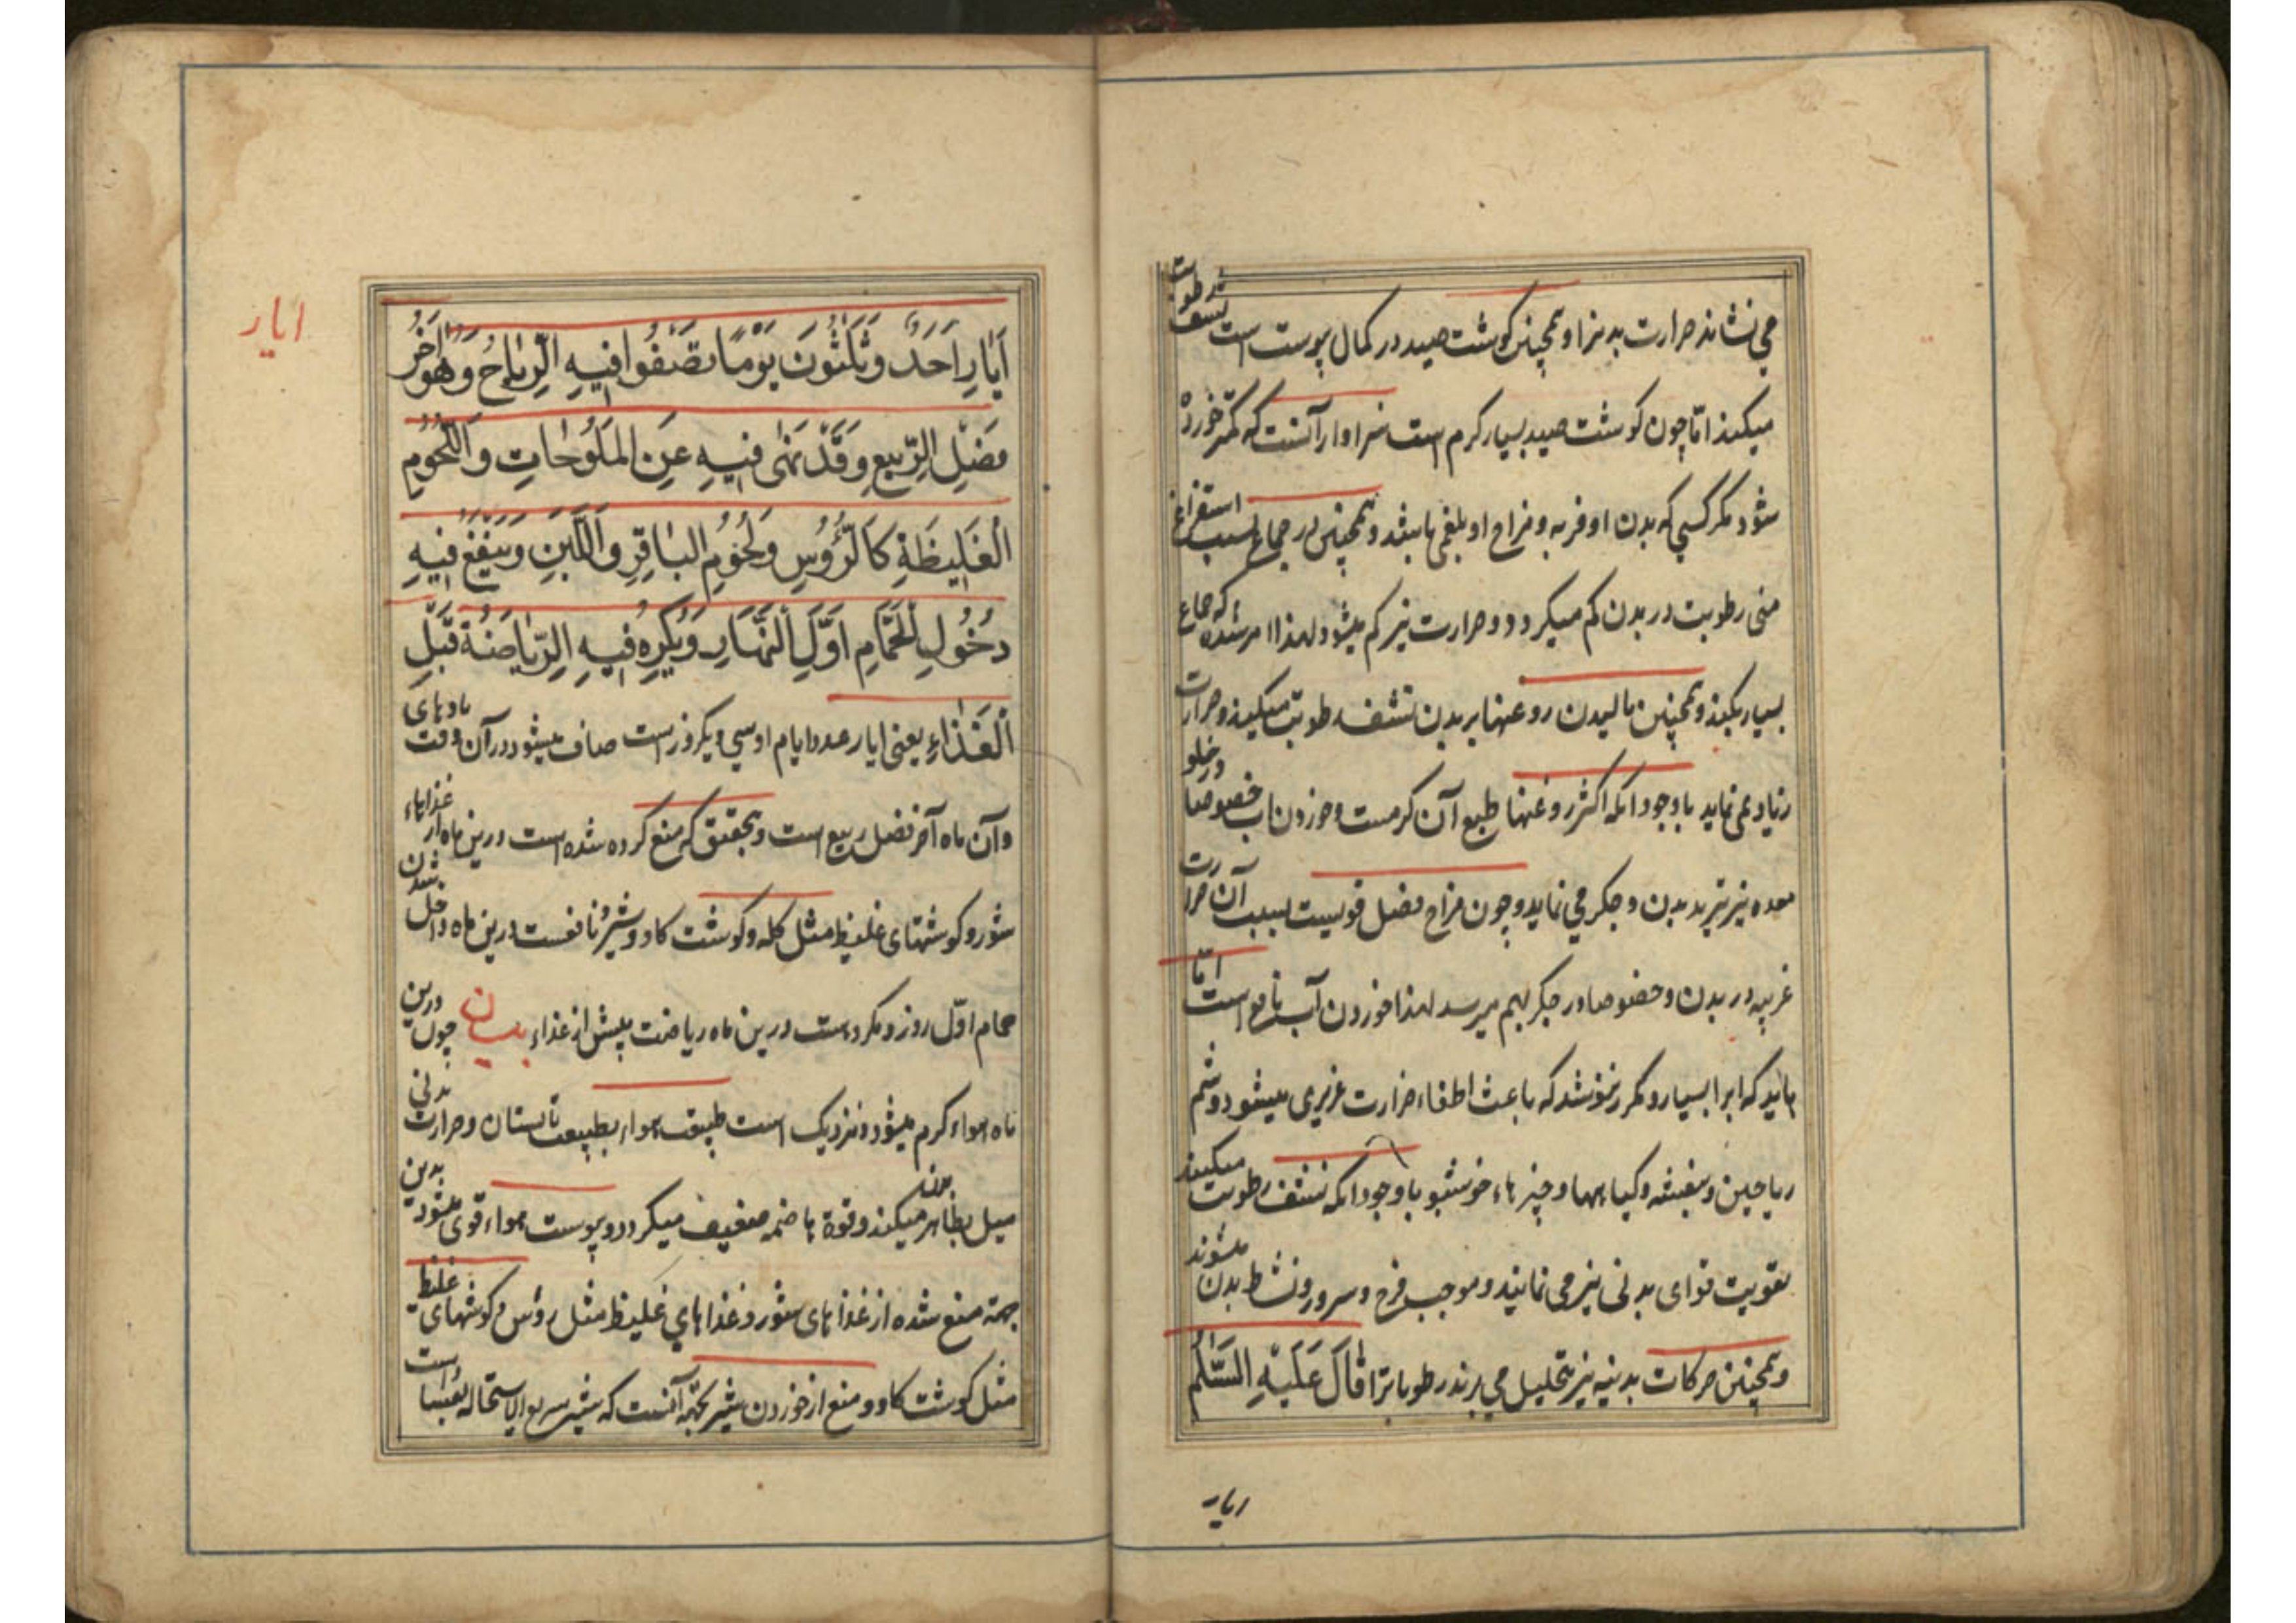 می نشاند حرارت بدنرا و همچنین گوشت صید در کمال یبوست است نشف رطوبت
میکند اما چون گوشت صید بسیار گرم است سزاوار آنست که کمتر خورده
شود مگر کسی که بدن او فربه و مزاج او بلغمی باشد و همچنین در جماع بسبب استفراغ
منی رطوبت در بدن کم میگردد و حرارت نیز کم میشود لهذا امر شده که جماع
بسیار بکنند و همچنین مالیدن روغنها بر بدن نشف رطوبت میکند و حرارت
زیاد نمی نماید با وجود آنکه اکثر روغنها طبع آن گرمست و خوردن آب خصوصا در خلو
معده نیز تبرید بدن و جگر می نماید و چون مزاج فصل قویست بسبب آن حرارت
غریبه در بدن و خصوصا در جگر بهم میرسد لهذا خوردن آب نافع است اما
باید که آبرا بسیار و مکرر ننوشد که باعث اطفاء حرارت غریزی میشود و شم
ریاحین و بنفشه و گیاهها و چیزهاء خوشبو با وجود آنکه نشف رطوبت میکنند
تقویت قوای بدنی نیز می نمایند و موجب فرح و سرور و نشاط بدن میشوند
و همچنین حرکات بدنیه نیز تحلیل می برند رطوباترا قَالَ عَلَیْهِ السَّلٰم
ایار
ایار
اَیّارِ اَحَدٌ وَ ثَلٰثُونَ یَوْمًا تصَفُوا فیهِ الرِّیاحُ وَ هُوَ اٰخِرُ
فَصْلِ الرَّبیعِ وَ قَدْ نَهٰی فیهِ عَنِ المَلُوحَاتِ وَ اللُّحُومِ
الْغَلِیظَةِ کَالرُّؤُسِ وَ لُحُومِ البَاقِرِ وَ اللَّبَنِ وَ یَنْفَعُ فیهِ
دُخُولِ الْحَمَّامِ اَوَّلِ النَّهارِ وَ یُکرِهُ فیهِ الرِّیَاضَةُ قَبْلِ
الْغَذَاءِ یعنی ایار عدد ایام او سی و یکروز است صاف میشود در آن وقت بادهای
و آن ماه آخر فصل ربیع است و بتحقیق که منع کرده شده است درین ماه از غذاهاء
شور و گوشتهای غلیظ مثل کله و گوشت گاو و شیر و نافعست درین ماه داخل شدن
حمام اوّل روز و مکروهست درین ماه ریاضت پیش از غذاء بیان چون درین
ماه هواء گرم میشود و نزدیک است طبیعت هواء بطبیعت تابستان و حرارت بدنی
میل بظاهر بدن میکند و قوة هاضمه ضعیف میگردد و یبوست هواء قوی میشود بدین
جهة منع شده از غذاهای شور و غذاهای غلیظ مثل رؤس و گوشتهای غلیظ
مثل گوشت گاو و منع از خوردن شیر بجهة آنست که شیر سریع الاستحاله است